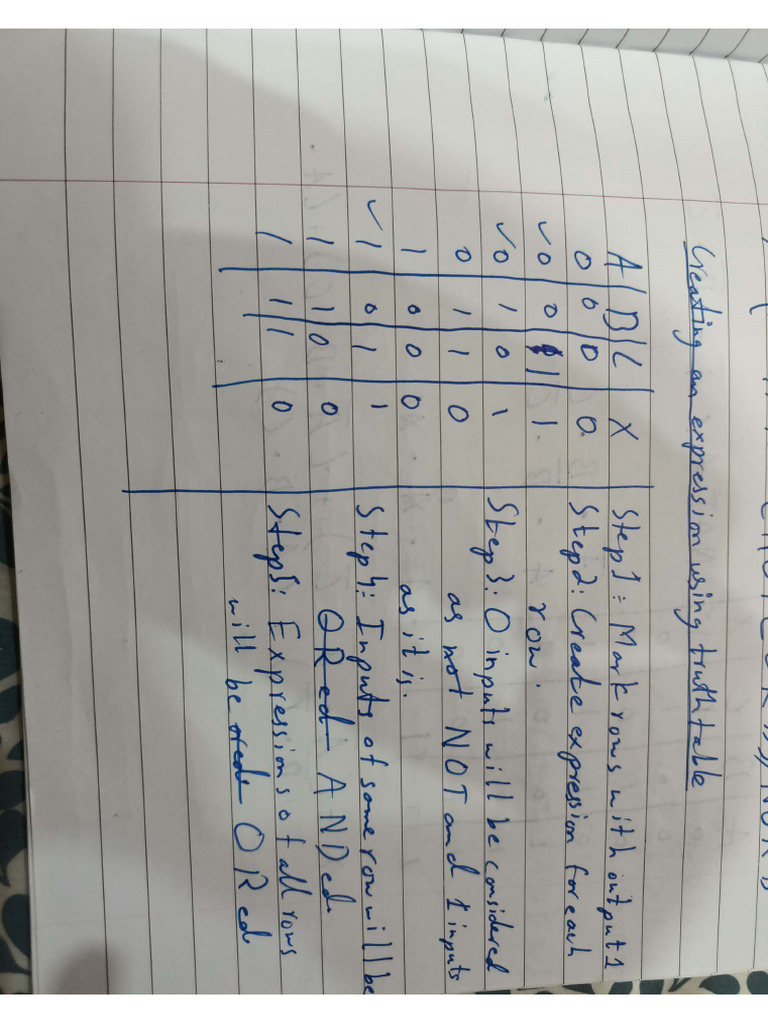 Creating an expression using truth table
A | B | C X
0 0 0 0
✓0 0 1 1
✓0 1 0 1
0 1 1 0
1 0 0 0
✓1 0 1 1
1 1 0 0
1 1 1 0
Step1: Mark rows with output 1
Step2: Create expression for each
row.
Step3: 0 inputs will be considered
as not NOT and 1 inputs
as it is.
Step4: Inputs of same row will be
ORed ANDed
Step5: Expressions of all rows
will be ored ORed